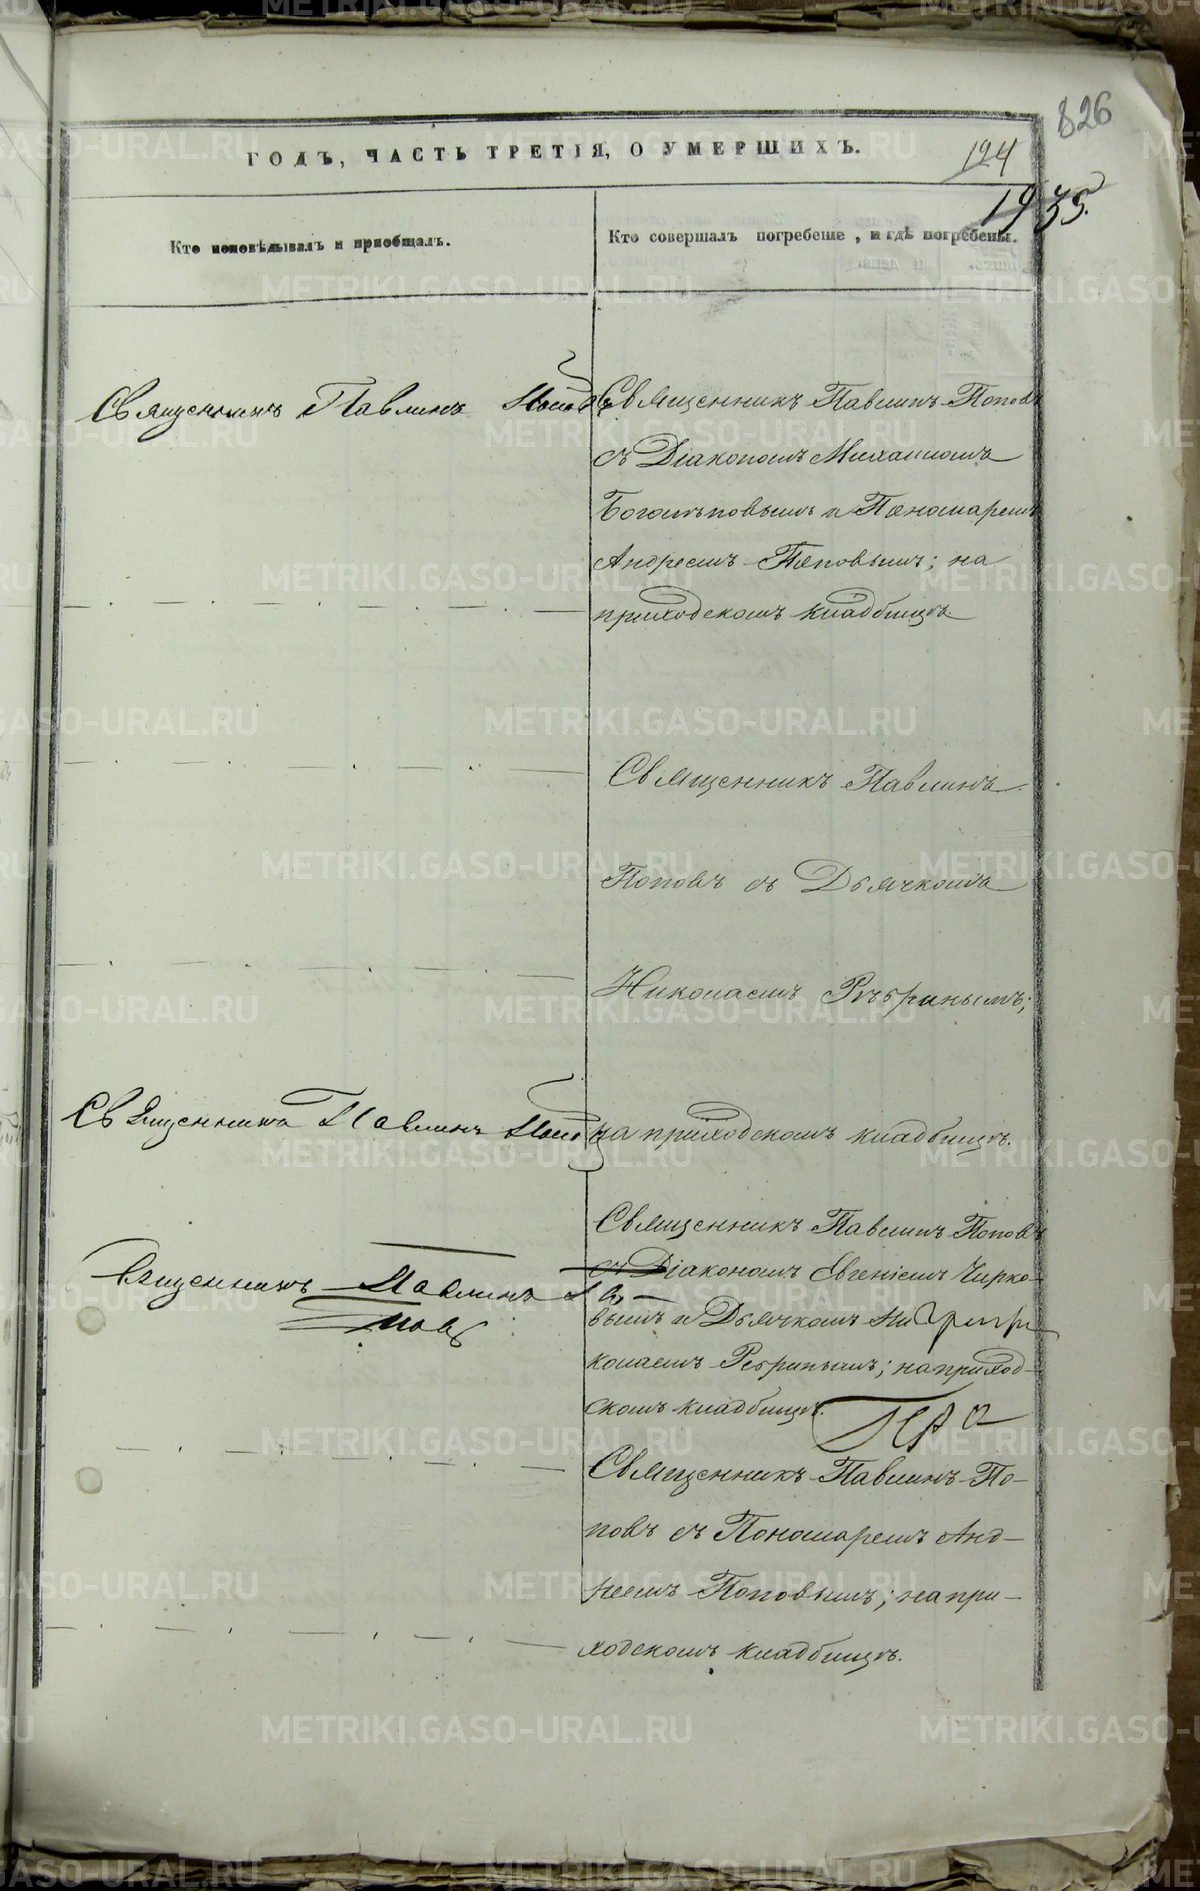 826
ГОДЪ, ЧАСТЬ ТРЕТІЯ, О УМЕРШИХЪ.
124
1935.
Кто исповѣдывалъ и пріобщалъ.
Кто совершалъ погребеніе, и гдѣ погребены.
Священникъ Павлинъ Поповъ
Священникъ Павлинъ Поповъ
съ Діакономъ Михаиломъ
и Пономаремъ
Андреемъ Поповымъ; на
приходскомъ кладбищѣ.
Священникъ Павлинъ
Поповъ съ Дьячкомъ
Николаемъ Ребринымъ;
Священникъ Павлинъ Поповъ
на приходскомъ кладбищѣ.
Священникъ Павлинъ Поповъ
съ Діакономъ Евгеніемъ Чирко-
вымъ и Дьячкомъ Ни
колаемъ Ребринымъ; на приход-
скомъ кладбищѣ.
Священникъ Павлинъ
По
повъ
Священникъ Павлинъ По-
повъ съ Пономаремъ Анд-
реемъ Поповымъ; на при-
ходскомъ кладбищѣ.
METRIKI.GASO-URAL.RU